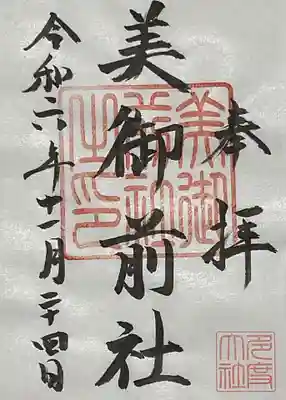 奉拝
美御前社
令和六年十一月二十四日
美御前社之印
多度大社